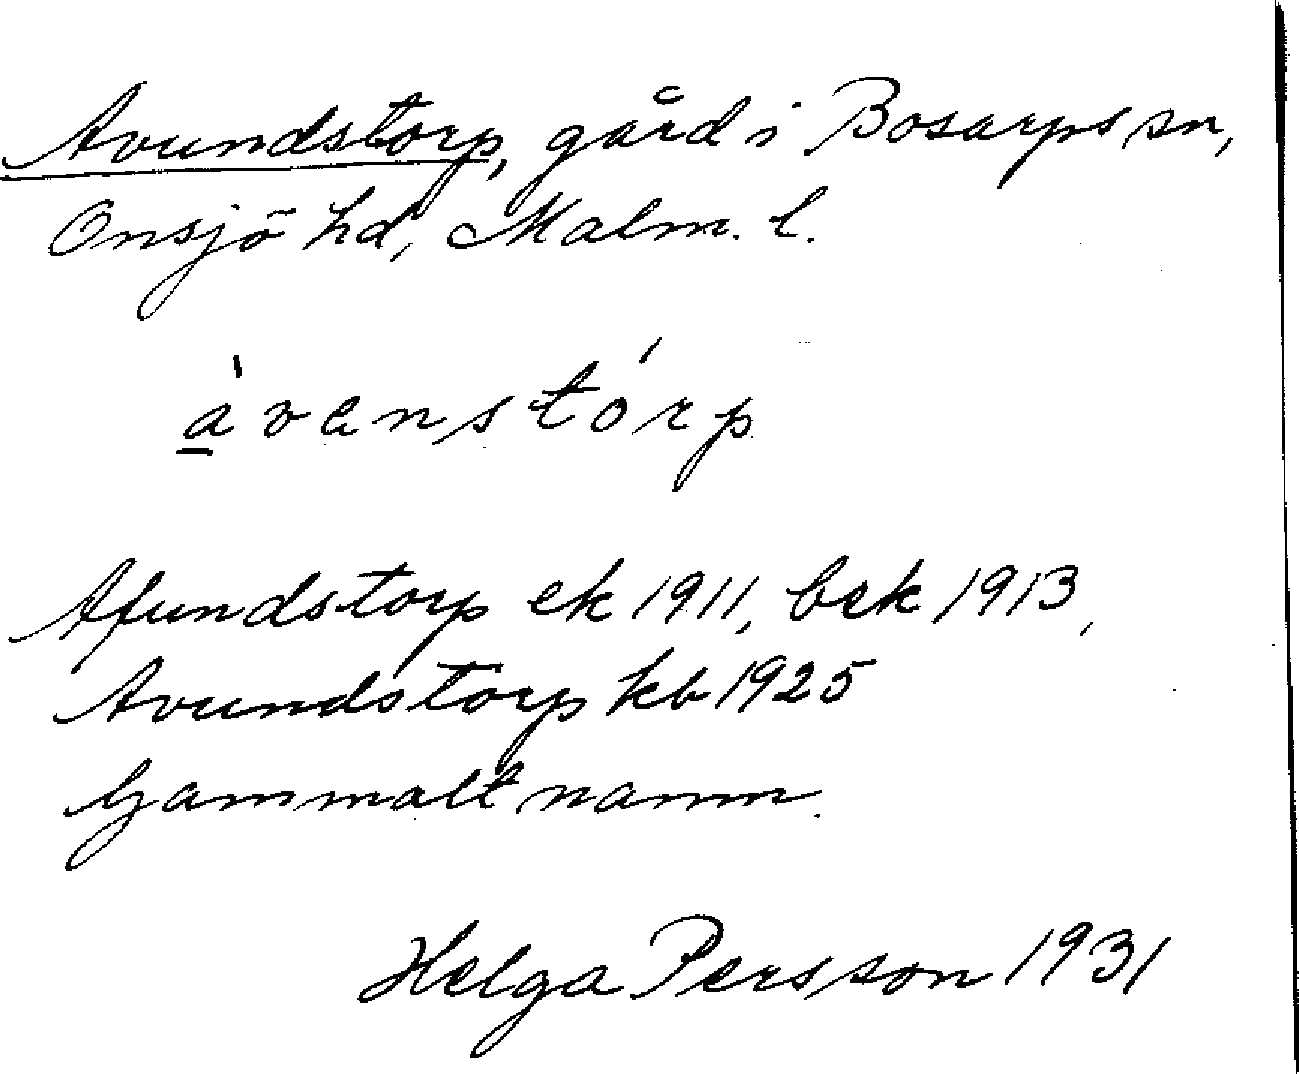 Avundstorp, gård i Bosarps sn,
Onsjö hd, Malm. l.
a̱̍venstórp
Afundstorp ek 1911, bek 1913,
Avundstorp kb 1925
Gammalt namn.
Helga Persson 1931